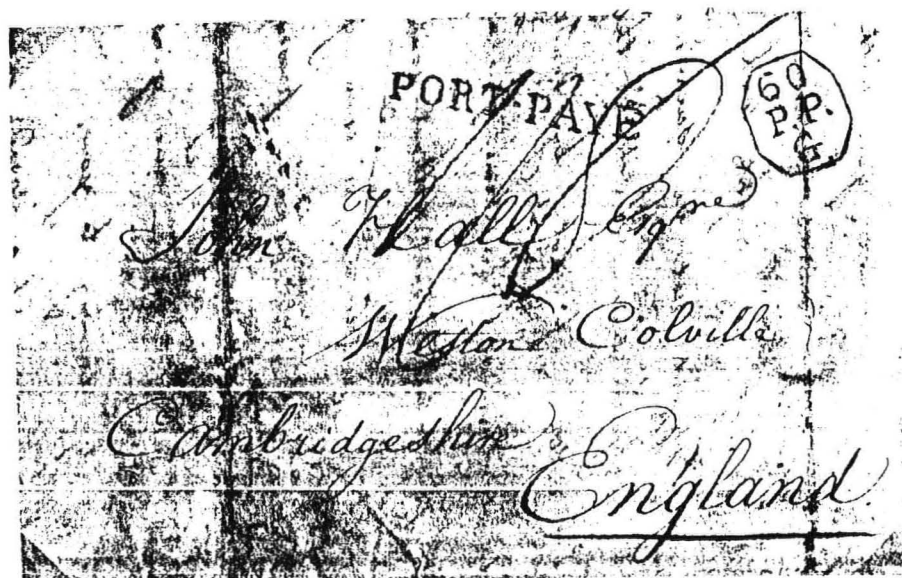 PORT-PAYÉ
60
P.P.
G.
John Hall Esqre
Weston Colville
Cambridgeshire
England